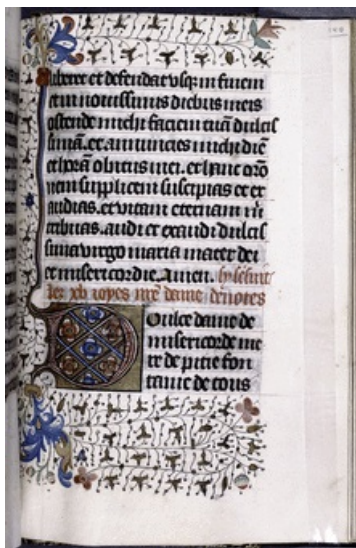 liberet et defendat usq; in finem
et in novissimis diebus meis
ostende michi faciem tuā dulcis
simā. et annuncies michi diē
et horā obitus mei. et hanc orō
nem supplicem suscipias et ex
audias. et vitam eternam m̄
tribuas. audi et exaudi dulcis
sima virgo maria mater dei
et misericordie. Amen. Cy sensuit
les xv ioyes n̄re dame devotes
Doulce dame de
misericorde me
re de pitie fon
taine de tous